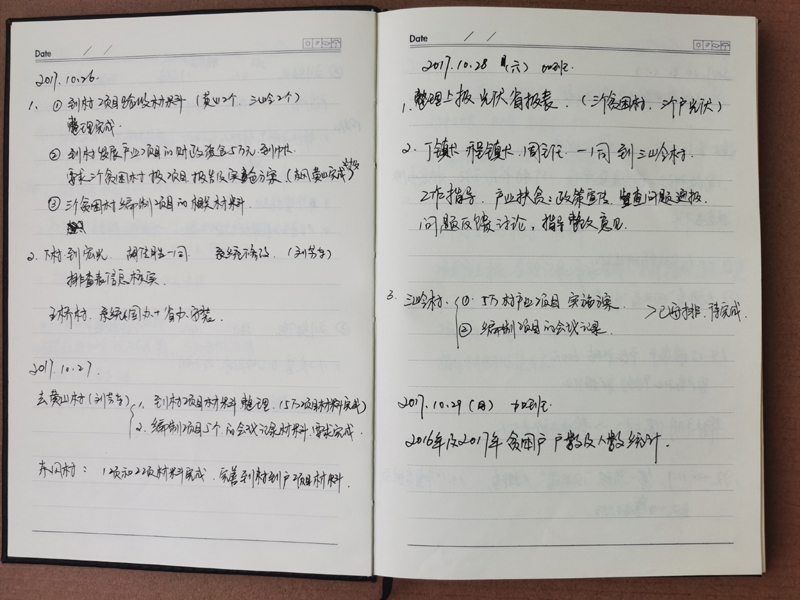 Date / /
2017.10.26.
1. ① 到村项目验收材料（黄山2个、三岭2个）
整理完成.
② 到村发展产业项目的财政资金5万元到村.
要求三个贫困村报项目报告及实施方案（东冈黄山完成）
③ 三个贫困村编制项目的相关材料.
2. 下村到宏光 一同 系统修改.（刘书书）
排查表信息核实
王桥村. 系统
2017.10.27.
去黄山村（刘书书） 1. 到村项目材料整理（5万项目材料完成）
2. 编制项目5个的会议记录材料, 要求完成.
东冈村： 1项和2项材料完成. 完善到村到户项目材料.
Date / /
2017.10.28（六） 加班.
1. 整理上报光伏省报表.（三个贫困村、三个户光伏）
2. 丁镇长 程镇长 周主任 一同到三岭村.
工作指导. 产业扶贫：政策宣传. 督查问题通报.
问题反馈讨论, 指导整改意见.
3. 三岭村. ① 5万村产业项目实施方案.
② 编制项目的会议记录. >已安排. 待完成.
2017.10.29（日） 加班
2016年及2017年贫困户户数及人数统计.